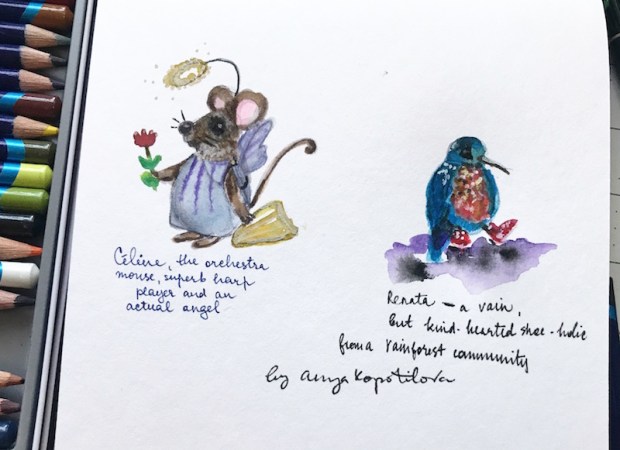 Céline, the orchestra
mouse, superb harp
player and an
actual angel
Renata – a vain,
but kind-hearted shoe-holic
from a rainforest community
by Anya Kopotilova